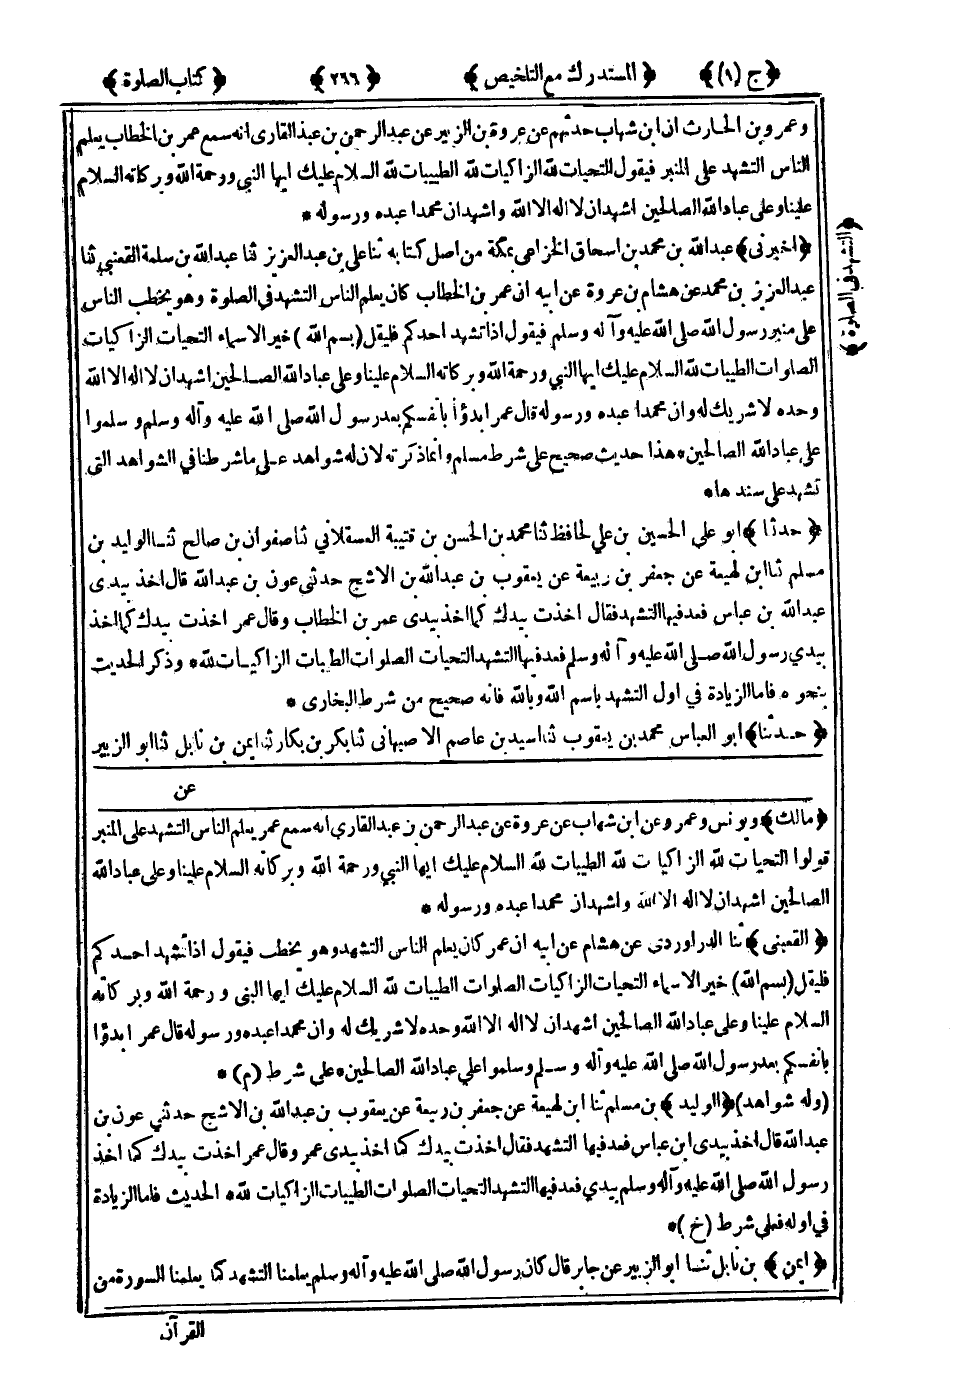 ﴿ج (١)﴾ ﴿المستدرك مع التلخيص﴾ ﴿٢٦٦﴾ ﴿كتاب الصلوة﴾
وعمرو بن الحارث ان ابن شهاب حدثهم عن عروة بن الزبير عن عبد الرحمن بن عبد القارى انه سمع عمر بن الخطاب يعلم
الناس التشهد على المنبر فيقول للتحيات لله الزاكيات لله الطيبات لله السلام عليك ايها النبي ورحمة الله وبركاته السلام
علينا وعلى عباد الله الصالحين اشهد ان لا اله الا الله واشهد ان محمدا عبده ورسوله *
﴿اخبرنى﴾ عبد الله بن محمد بن اسحاق الخزاعى بمكة من اصل كتابه ثنا على بن عبد العزيز ثنا عبد الله بن سلمة القعنبي ثنا
عبد العزيز بن محمد عن هشام بن عروة عن ابيه ان عمر بن الخطاب كان يعلم الناس التشهد في الصلوة وهو يخطب الناس
على منبر رسول الله صلى الله عليه وآله وسلم فيقول اذا تشهد احدكم فليقل (بسم الله) خير الاسماء التحيات الزاكيات
الصلوات الطيبات لله السلام عليك ايها النبي ورحمة الله وبركاته السلام علينا وعلى عباد الله الصالحين اشهد ان لا اله الا الله
وحده لا شريك له وان محمدا عبده ورسوله قال عمر ابدؤا بانفسكم بعد رسول الله صلى الله عليه وآله وسلم وسلموا
على عباد الله الصالحين * هذا حديث صحيح على شرط مسلم وانما ذكرته لان له شواهد على ما شرطنا في الشواهد التى
تشهد على سندها *
﴿حدثنا﴾ ابو على الحسين بن علي لحافظ ثنا محمد بن الحسن بن قتيبة العسقلاني ثنا صفوان بن صالح ثنا الوليد بن
مسلم ثنا ابن لهيعة عن جعفر بن ربيعة عن يعقوب بن عبد الله بن الاشج حدثني عون بن عبد الله قال اخذ بيدى
عبد الله بن عباس فعد فيها التشهد فقال اخذت بيدك كما اخذ بيدى عمر بن الخطاب وقال عمر اخذت بيدك كما اخذ
بيدي رسول الله صلى الله عليه وآله وسلم فعد فيها التشهد التحيات الصلوات الطيبات الزاكيات لله * وذكر الحديث
بنحوه فاما الزيادة في اول التشهد باسم الله وبالله فانه صحيح من شرط البخارى *
﴿حدثنا﴾ ابو العباس محمد بن يعقوب ثنا اسيد بن عاصم الاصبهانى ثنا بكر بن بكار ثنا ايمن بن نابل ثنا ابو الزبير
عن
﴿التشهد في الصلوة﴾
﴿مالك﴾ ويونس وعمرو عن ابن شهاب عن عروة عن عبد الرحمن بن عبد القاري انه سمع عمر يعلم الناس التشهد على المنبر
قولوا التحيات لله الزاكيات لله الطيبات لله السلام عليك ايها النبي ورحمة الله وبركاته السلام علينا وعلى عباد الله
الصالحين اشهد ان لا اله الا الله واشهد ان محمدا عبده ورسوله *
﴿القعنبى﴾ ثنا الدراوردى عن هشام عن ابيه ان عمر كان يعلم الناس التشهد وهو يخطب فيقول اذا تشهد احدكم
فليقل (بسم الله) خير الاسماء التحيات الزاكيات الصلوات الطيبات لله السلام عليك ايها النبى ورحمة الله وبركاته
السلام علينا وعلى عباد الله الصالحين اشهد ان لا اله الا الله وحده لا شريك له وان محمدا عبده ورسوله قال عمر ابدؤا
بانفسكم بعد رسول الله صلى الله عليه وآله وسلم وسلموا على عباد الله الصالحين * على شرط (م) *
(وله شواهد) ﴿الوليد﴾ بن مسلم ثنا ابن لهيعة عن جعفر بن ربيعة عن يعقوب بن عبد الله بن الاشج حدثني عون بن
عبد الله قال اخذ بيدى ابن عباس فعد فيها التشهد فقال اخذت بيدك كما اخذ بيدى عمر وقال عمر اخذت بيدك كما اخذ
رسول الله صلى الله عليه وآله وسلم بيدي فعد فيها التشهد التحيات الصلوات الطيبات الزاكيات لله * الحديث فاما الزيادة
في اوله فعلى شرط (خ) *
﴿ايمن﴾ بن نابل ثنا ابو الزبير عن جابر قال كان رسول الله صلى الله عليه وآله وسلم يعلمنا التشهد كما يعلمنا السورة من
القرآن